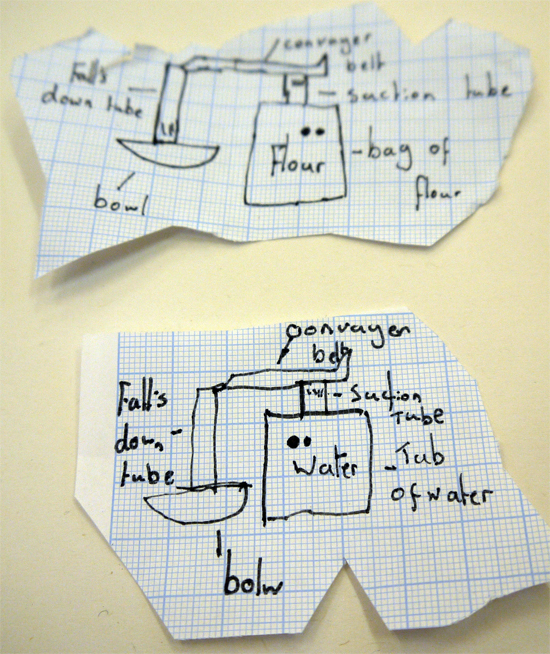 convayer
belt
Falls
down tube
suction tube
Flour
bag of
flour
bowl
convayer
belt
Falls
down
tube
Suction
Tube
Water
Tub
of water
bolw